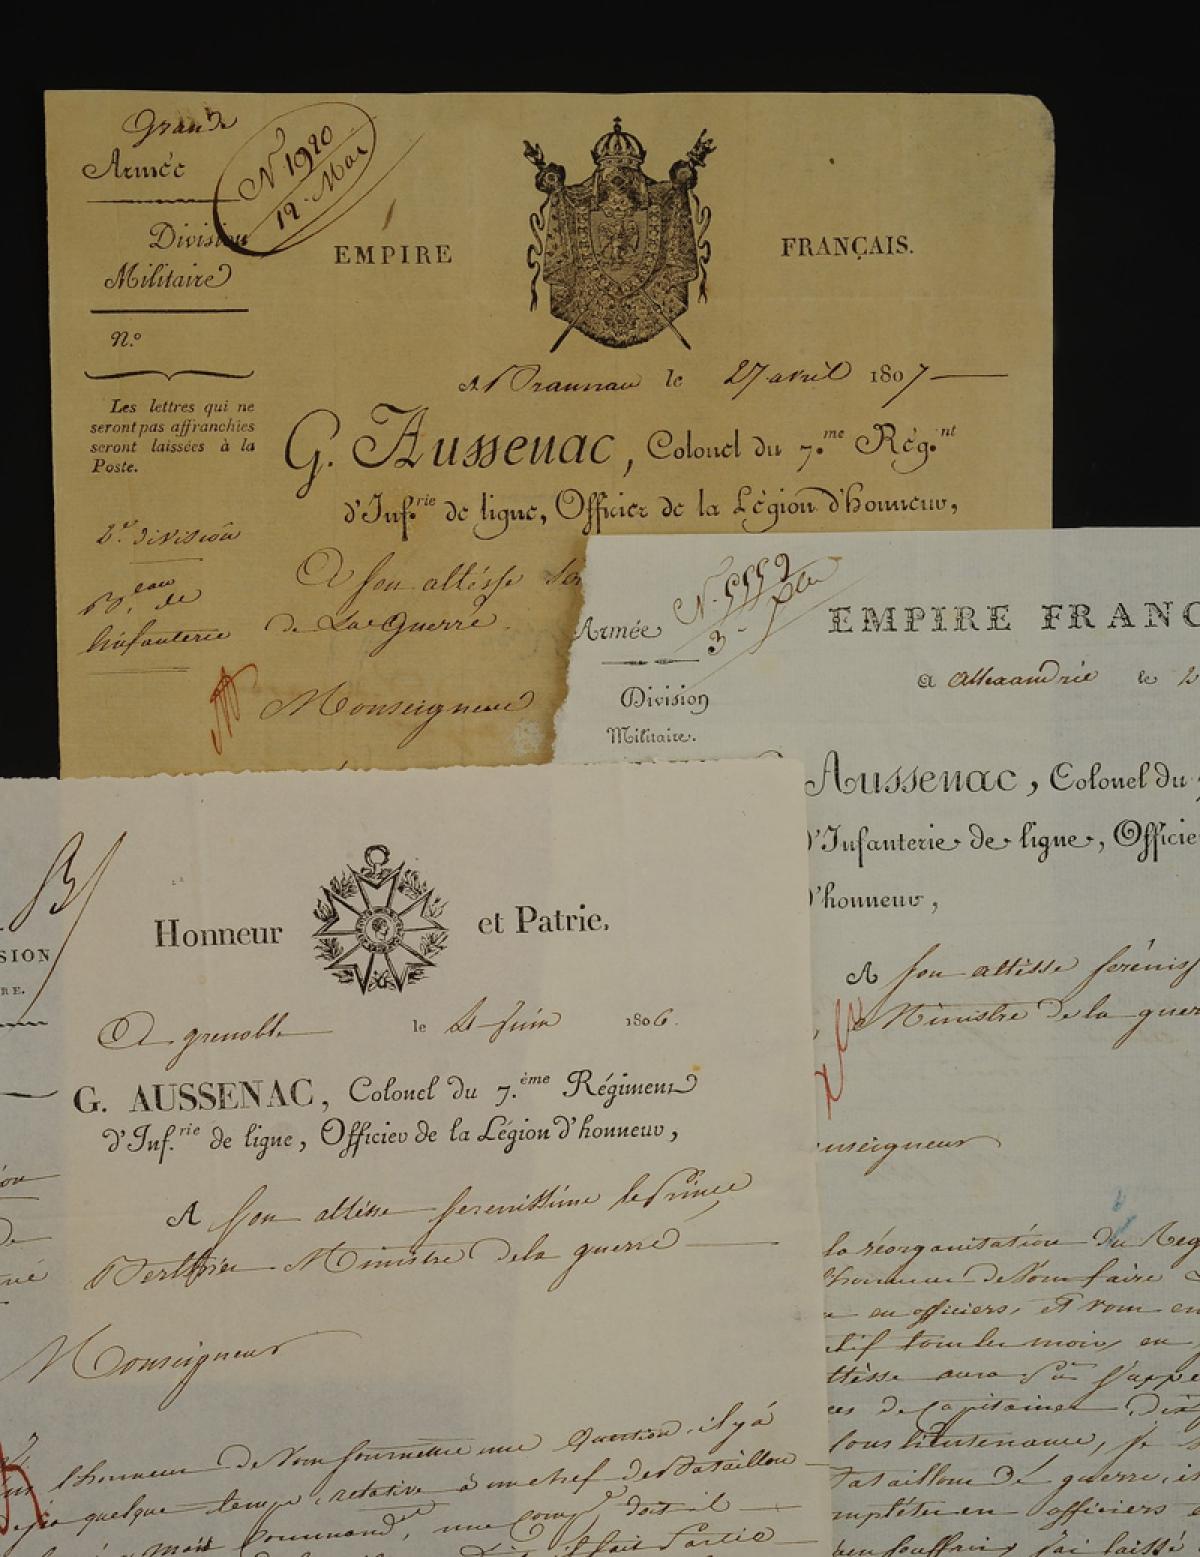 Grande
Armée
N 1920
12. Mai
Division
Militaire
N.º
EMPIRE FRANÇAIS.
A Braunau le 27 avril 1807
Les lettres qui ne
seront pas affranchies
seront laissées à la
Poste.
G. Aussenac, Colonel du 7.me Rég.nt
d'Inf.rie de ligne, Officier de la Légion d'honneur,
2.e division
B.eau de
L'infanterie
A son altésse
de La Guerre.
Monseigneur
Armée
N. 5552
3
Division
Militaire.
EMPIRE FRANC
a allexandrie le 2
Aussenac, Colonel du
d'Infanterie de ligne, Officie
d'honneur,
A son altèsse serénis
Ministre de la guer
onseigneur
la réorganisation du Reg
l'honneur de Vous faire
en officiers, et vous en
tous les mois, en
ttèsse aura
es de Capitaines
sous lieutenance, je
Bataillons de guerre,
mpléter en officiers
j'ai laissé
SION
RE.
Honneur et Patrie.
A grenoble le 4 Juin 1806.
G. AUSSENAC, Colonel du 7.ème Régiment
d'Inf.rie de ligne, Officier de la Légion d'honneur,
A son altésse serenissime le Prince
Berthier Ministre de la guerre
Monseigneur
l'honneur de Vous soumettre une Question, il y a
quelque temps, relative à un chef de Bataillon
doit il
fait Partie